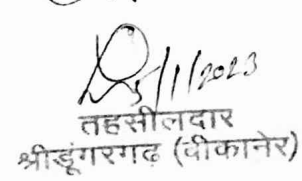 5/1/2023
तहसीलदार
श्रीडूंगरगढ़ (बीकानेर)